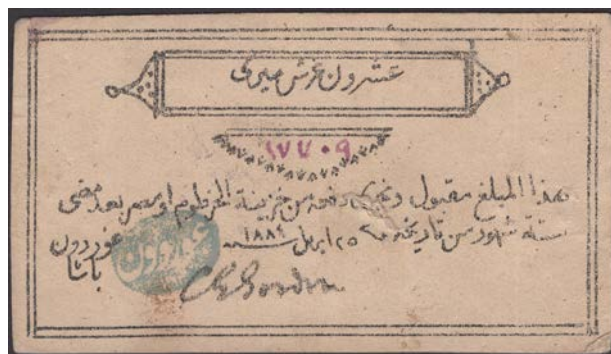 عشرون غرش ميرى
١٧٧٠٩
هذا المبلغ مقبول ونجرى دفعه من خزينة الخرطوم او مصر بعد مضى
ستة شهور من تاريخه ٢٥ ابريل سنة ١٨٨٤ غوردون
باشا
C G Gordon